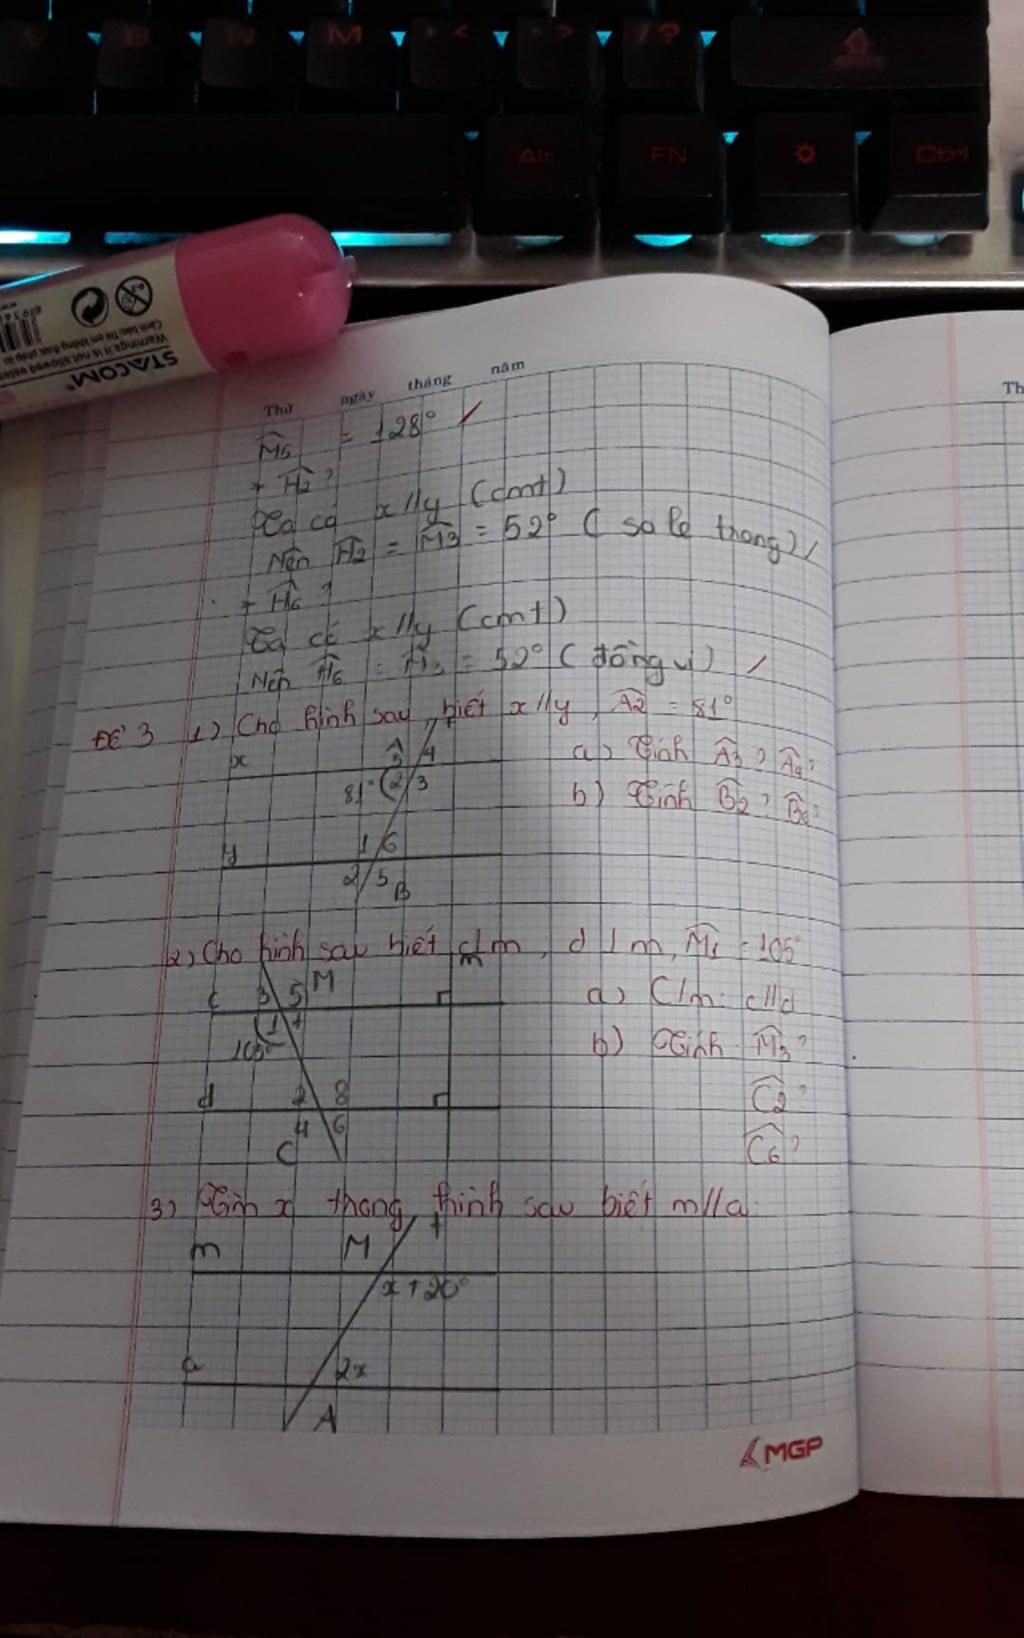 M
Alt
FN
Ctrl
STACOM
Thứ ngày tháng năm
Th
= 128°
+ H2?
Ta có x//y (cmt)
Nên H2 = M3 = 52° ( so le trong)
+ H6 ?
Ta có x//y (cmt)
Nên H6 = M3 = 52° ( đồng vị )
ĐỀ 3 1) Cho hình sau, biết x//y, A2 = 81°
x A 4 a) Tính A3?
81° 2 3 b) Tính B2?
y 1 6
2 5 B
2) Cho hình sau biết c⊥m, d⊥m, M1 = 105°
c 3 5 M m a) C/m: c//d
105° 1 b) Tính M3?
d 2 8 C2?
4 6 C6?
C
3) Tìm x trong hình sau biết m//a.
m M
x + 20°
a 2x
A
MGP